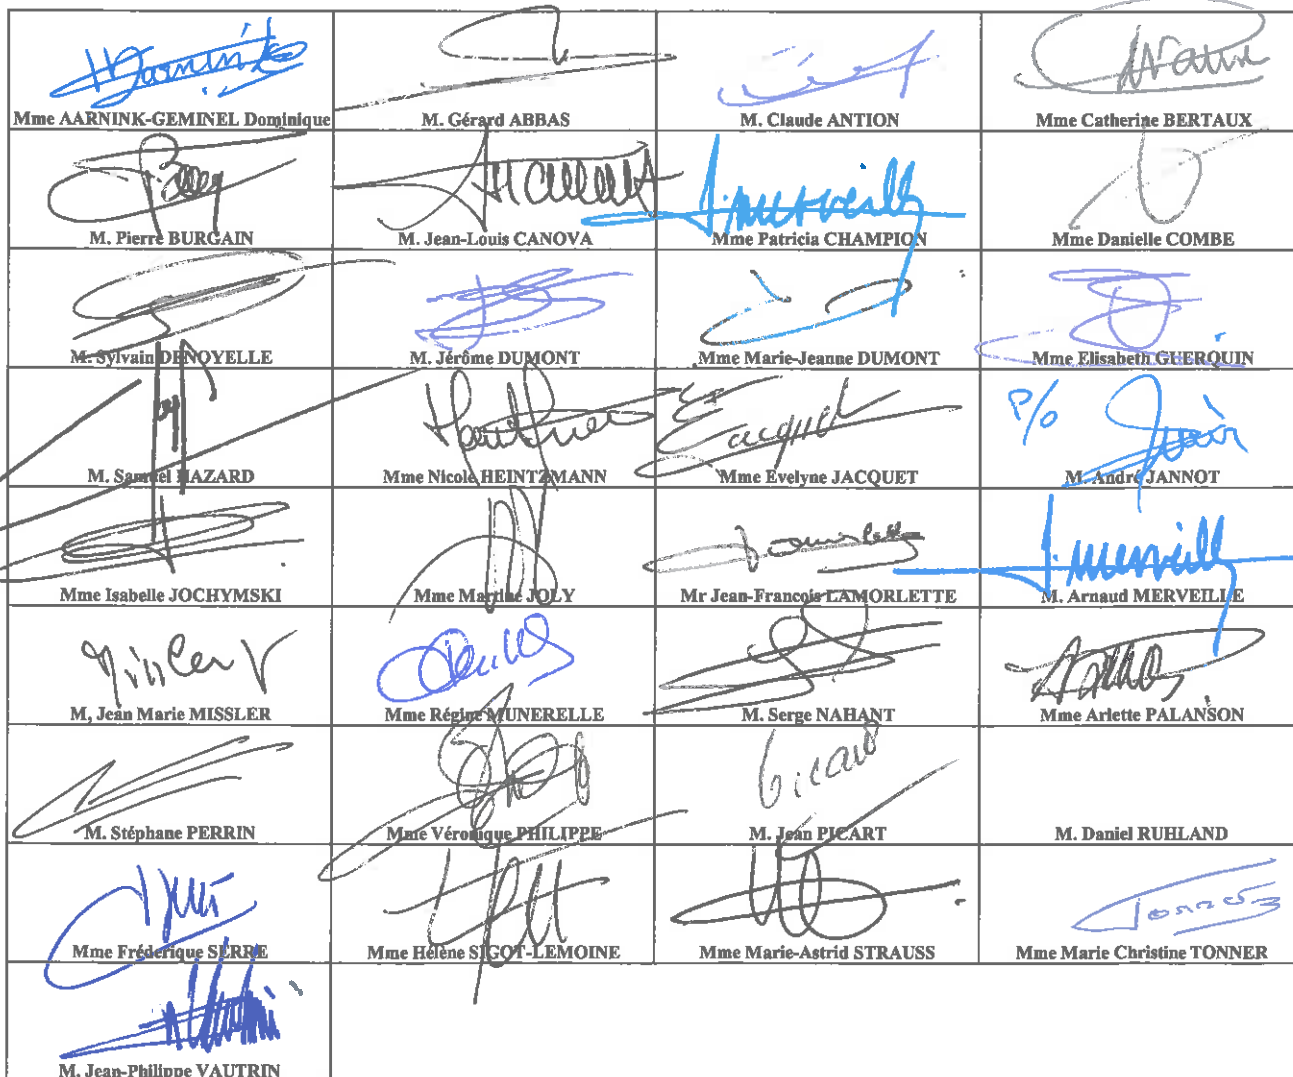 Mme AARNINK-GEMINEL Dominique
M. Gérard ABBAS
M. Claude ANTION
Mme Catherine BERTAUX
M. Pierre BURGAIN
M. Jean-Louis CANOVA
Mme Patricia CHAMPION
Mme Danielle COMBE
M. Sylvain DENOYELLE
M. Jérôme DUMONT
Mme Marie-Jeanne DUMONT
Mme Elisabeth GUERQUIN
P/o
M. Samuel HAZARD
Mme Nicole HEINTZMANN
Jacquet
Mme Evelyne JACQUET
M. André JANNOT
Mme Isabelle JOCHYMSKI
Mme Martine JOLY
Mr Jean-François LAMORLETTE
J. Merveille
M. Arnaud MERVEILLE
Missler
M, Jean Marie MISSLER
Mme Régine MUNERELLE
M. Serge NAHANT
Mme Arlette PALANSON
M. Stéphane PERRIN
Mme Véronique PHILIPPE
Picart
M. Jean PICART
M. Daniel RUHLAND
Mme Fréderique SERRE
Mme Hélène SIGOT-LEMOINE
Mme Marie-Astrid STRAUSS
Tonner
Mme Marie Christine TONNER
M. Jean-Philippe VAUTRIN